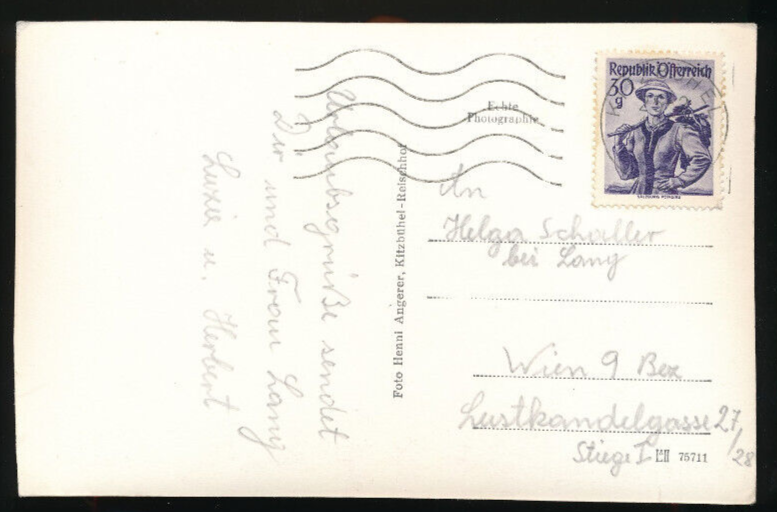 Urlaubsgrüße sendet
Dir und Frau Lang
Luzie u. Herbert
Foto Henni Angerer, Kitzbühel-Reischhof
Echte
Photographie
Republik Österreich
30
g
An
Helga Schaller
bei Lang
Wien 9 Bez
Lustkandelgasse 27/28
Stiege I
75711